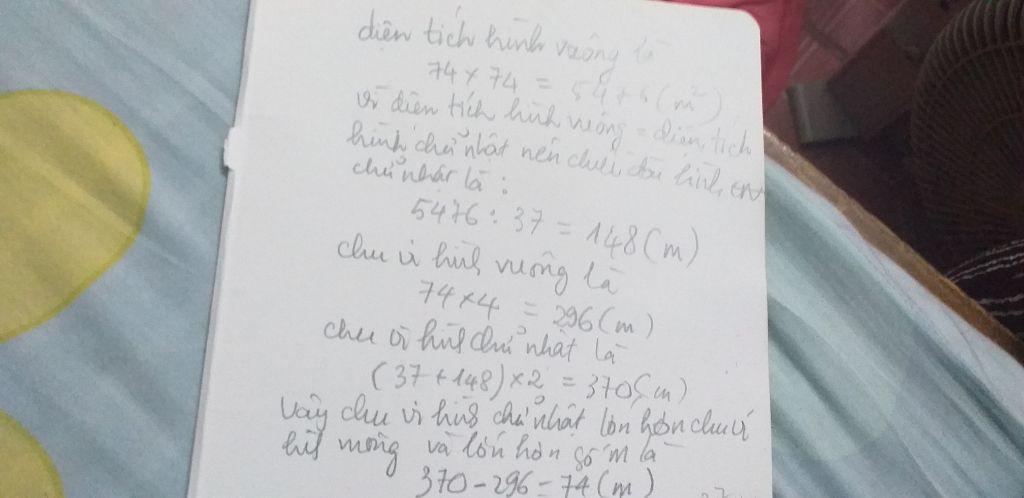 diện tích hình vuông là
74 × 74 = 5476 (m²)
vì diện tích hình vuông = diện tích
hình chữ nhật nên chiều dài hình
chữ nhật là :
5476 : 37 = 148 (m)
chu vi hình vuông là
74 × 4 = 296 (m)
chu vi hình chữ nhật là
(37 + 148) × 2 = 370 (m)
Vậy chu vi hình chữ nhật lớn hơn chu vi
hình vuông và lớn hơn số m là
370 - 296 = 74 (m)